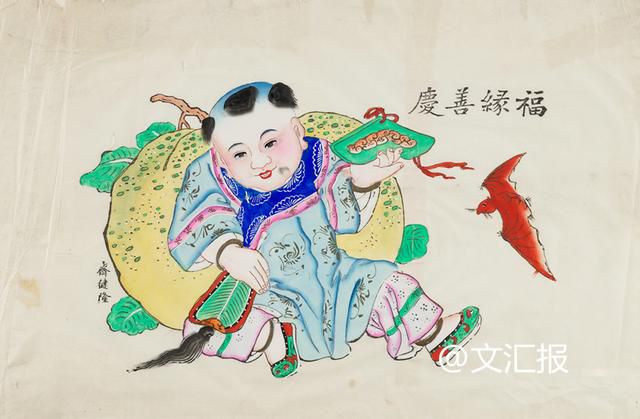 福緣善慶
齊健隆
@文汇报